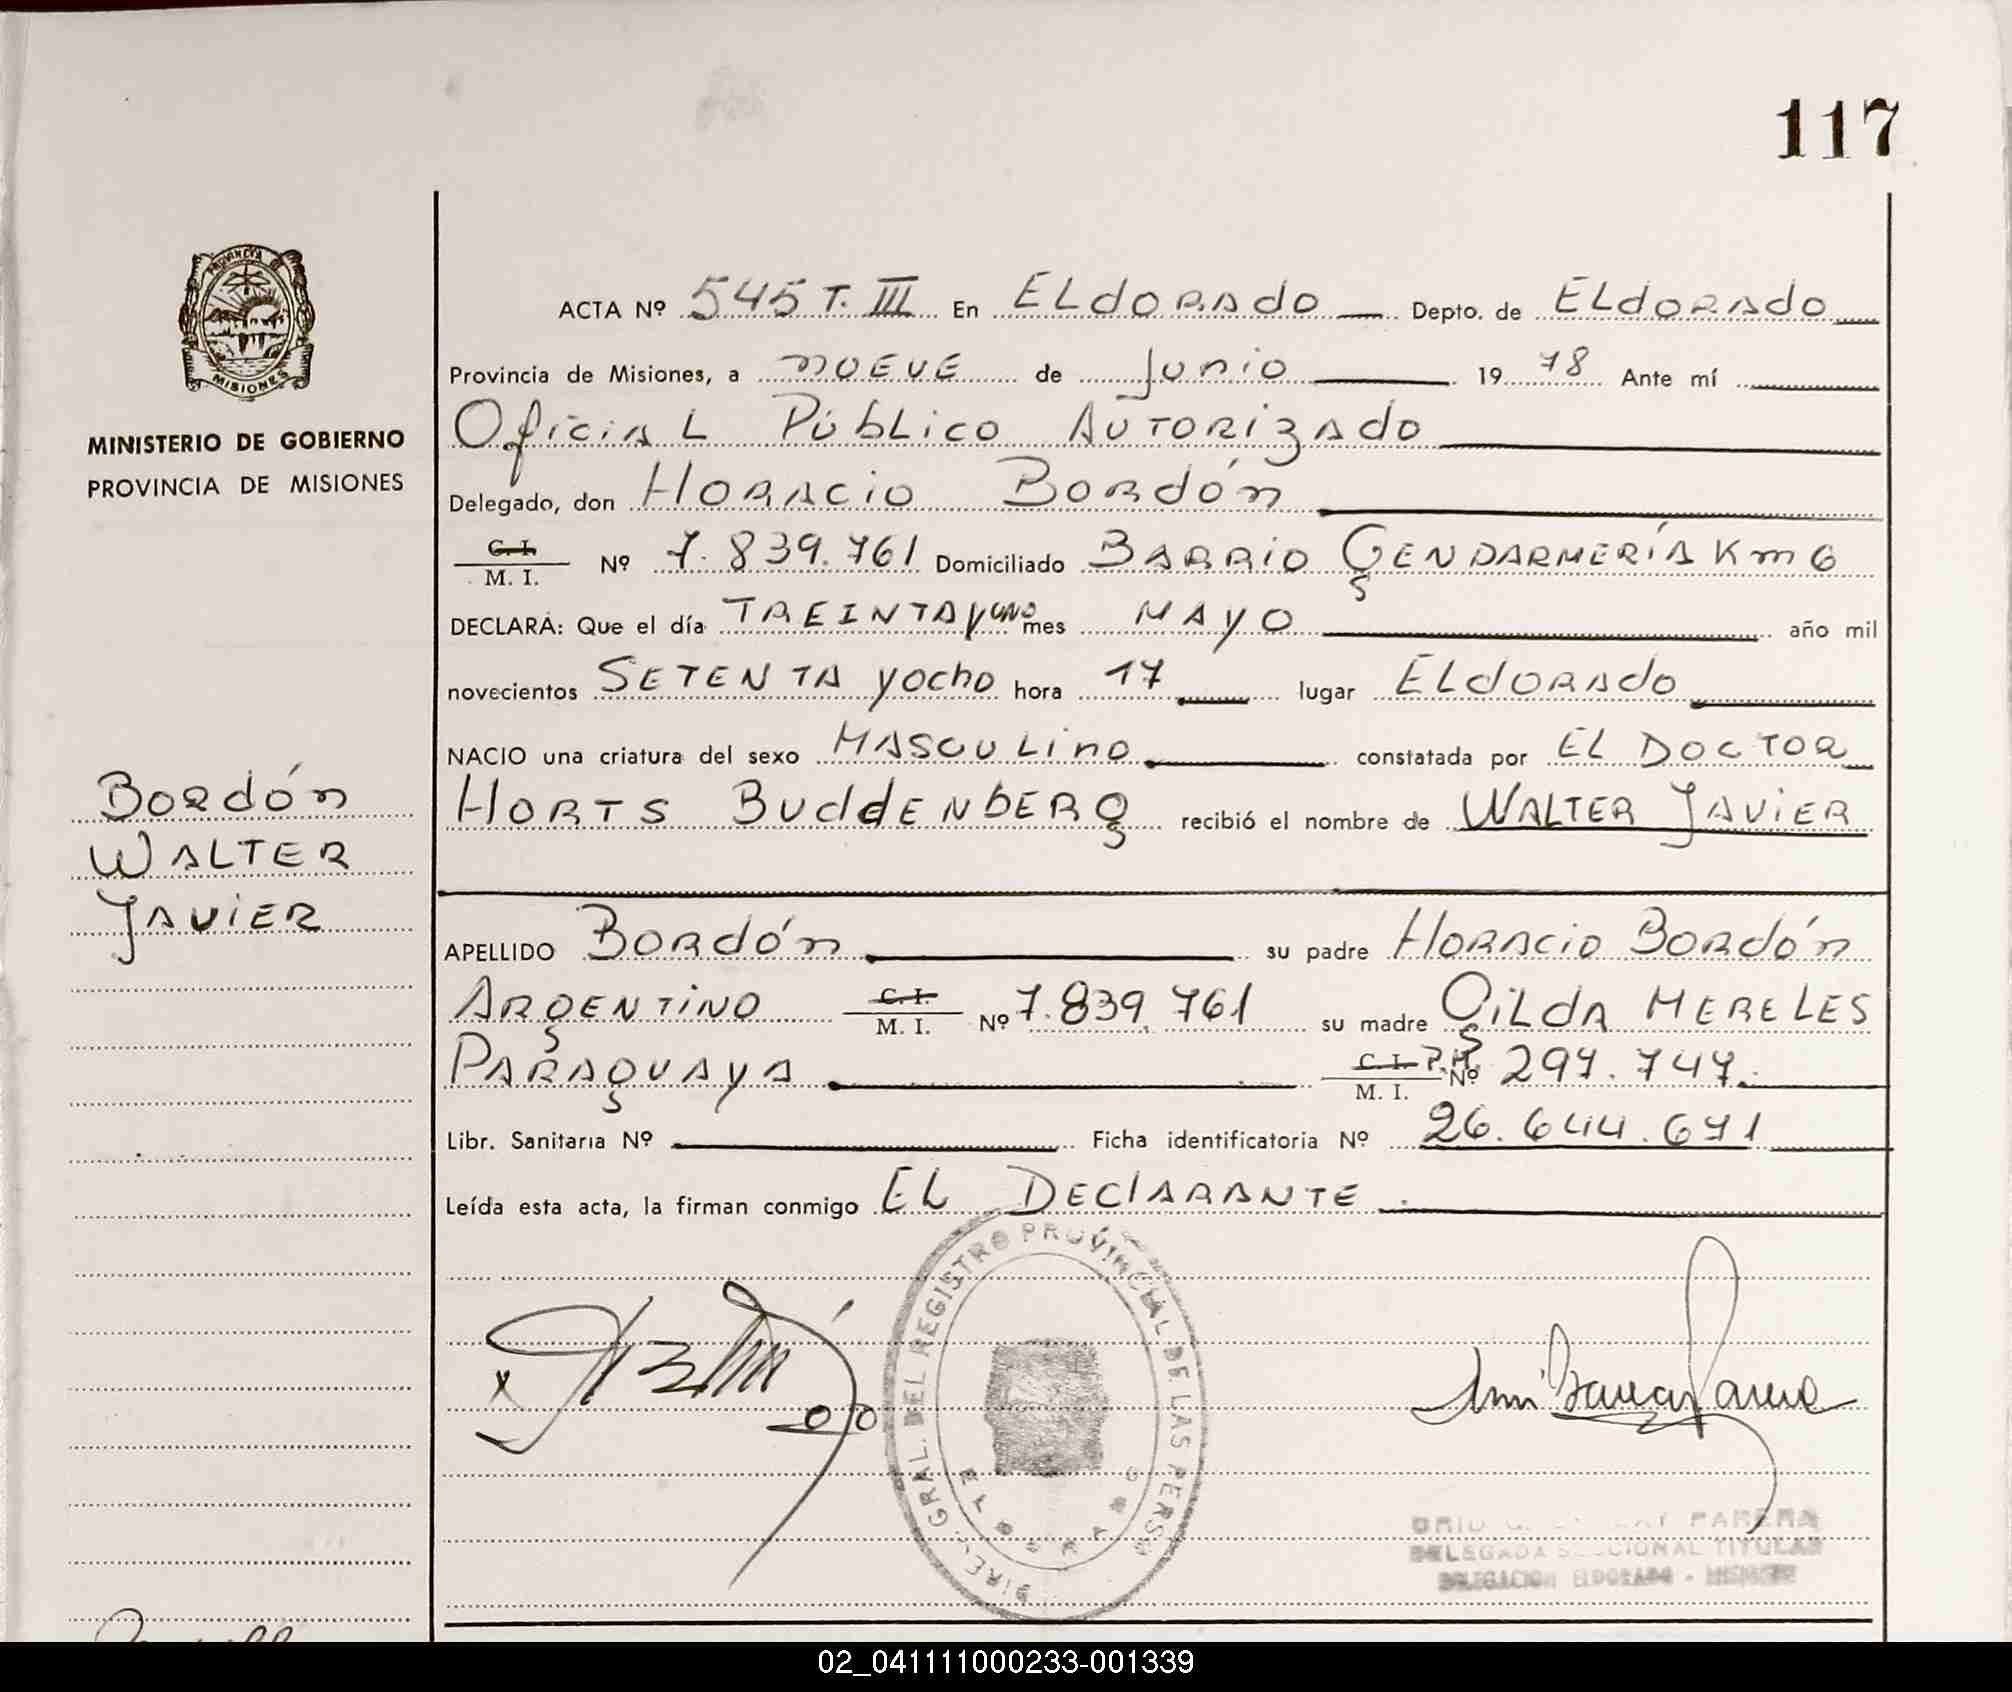 117
PROVINCIA DE
MISIONES
MINISTERIO DE GOBIERNO
PROVINCIA DE MISIONES
Bordón
Walter
Javier
ACTA Nº 545 T. III En Eldorado Depto. de Eldorado
Provincia de Misiones, a nueve de Junio 1978 Ante mí
Oficial Público Autorizado
Delegado, don Horacio Bordón
C. I.
M. I. Nº 7.839.761 Domiciliado Barrio Gendarmería Km 6
DECLARA: Que el día Treinta y uno mes Mayo año mil
novecientos Setenta y ocho hora 17 lugar Eldorado
NACIO una criatura del sexo Masculino constatada por El Doctor
Horts Buddenberg recibió el nombre de Walter Javier
APELLIDO Bordón su padre Horacio Bordón
Argentino C. I.
M. I. Nº 7.839.761 su madre Gilda Mereles
Paraguaya C. I.
M. I. Nº 297.747.
Libr. Sanitaria Nº Ficha identificatoria Nº 26.644.671
Leída esta acta, la firman conmigo El Declarante.
DIREC. GRAL. DEL REGISTRO PROVINCIAL DE LAS PERS
ELDORADO
PARERA
DELEGADA SECCIONAL TITULAR
DELEGACION ELDORADO - MISIONES
02_041111000233-001339